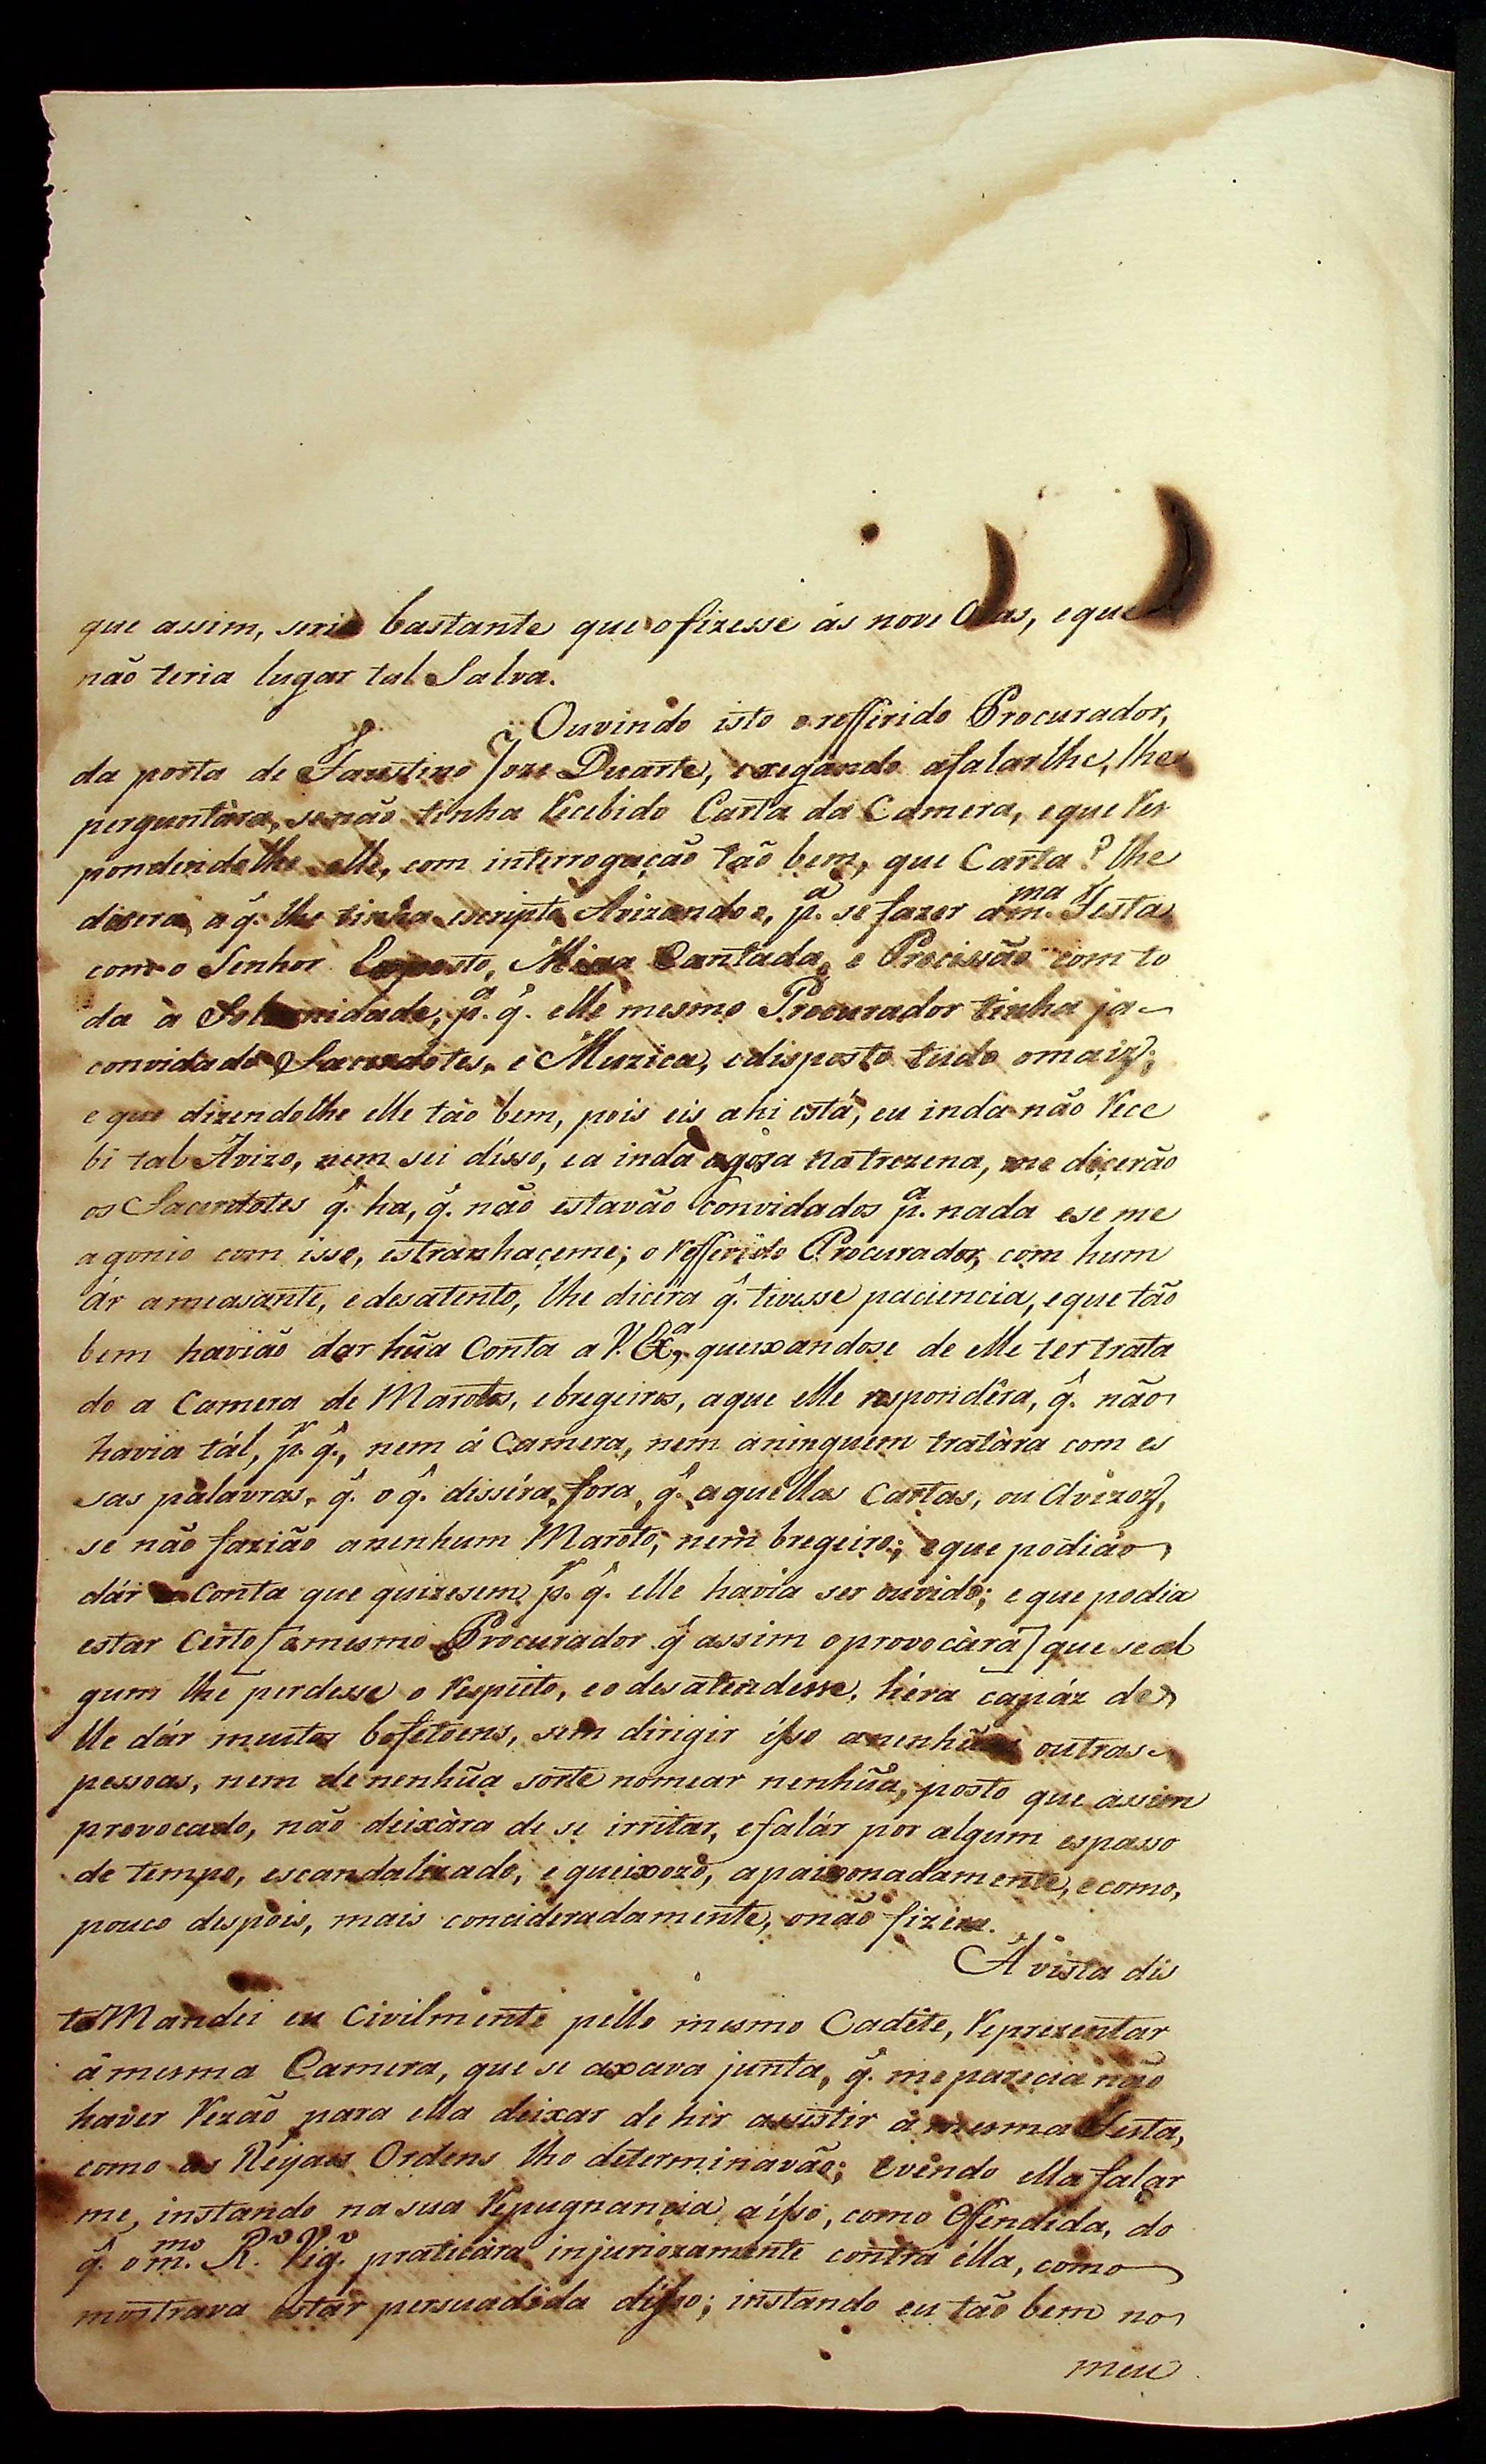 que assim, seria bastante que o fizesse ás nove Oras, eque
não teria lugar tal Salva.
Ouvindo isto o refferido Procurador,
da porta de Faustino Joze Duarte, exegando afalarlhe, lhe
perguntàra, senão tinha Recebido Carta da Camera, eque Res
pondendolhe elle, com interrogação tão bem, que Carta? lhe
dicera, a q̂. lhe tinha escripto Avizandoo, p.ª se fazer a m.ma Festa
com o Senhor Exposto, Missa Cantada, e Procissão com to
da à Solemnidade, p.ª q̂. elle mesmo Procurador tinha ja
convidado Sacerdotes, e Muzica, edisposto tudo omaiz;
e que dizendolhe elle tão bem, pois eis ahi está, eu inda não Rece
bi tal Avizo, nem sei disso, e a inda agora na trezena, me dicerão
os Sacerdotes q̂. ha, q̂. não estavão convidados p.ª nada ese me
agonio com isso, estranhaçeme; o Refferido Procurador, com hum
ár ameasante, edesatento, lhe dicéra q̂. tivesse paciencia, eque tão
bem havião dar hũa Conta a V. Ex.ª, queixandose de elle ter trata
do a Camera de Marotos, ebregeiros, aque elle respondêra, q̂. não
havia tál, p.r q̂., nem á Camera, nem aninguem tratàra com es
sas palavras, q̂. o q̂. disséra, fora, q̂. aquellas Cartas, ou Avizoz,
se não fazião anenhum Maroto, nem bregeiro; eque podião
dár a Conta que quizesem p.r q̂. elle havia ser ouvido; e que podia
estar Certo [o mesmo Procurador q̂ assim oprovocàra] que se al
gum lhe perdesse o Respeito, eo desatendesse, héra capáz de
lhe dár muitos bofetoens, sem dirigir isso anenhũas outras
pessoas, nem de nenhũa sorte nomear nenhũa, posto que assim
provocado, não deixàra de se irritar, efalár por algum espasso
de tempo, escandalizado, e queixozo, apaixonadamente, ecomo,
pouco despois, mais concideradamente, onão fizéra.
Á vista dis
to Mandei eu Civilmente pello mesmo Cadête, Reprezentar
á mesma Camera, que se axava junta, q̂. me parecia não
haver Rezão para ella deixar de hir assistir á mesma Festa,
como as Reyaes Ordens lho determinavão; Evindo ella falar
me, instando na sua Repugnancia aisso, como Offendida, do
q̂. o m.mo R.do Vig.ro praticàra injuriozamente contra élla, como
mostrava estár persuadida disso; instando eu tão bem no
meu